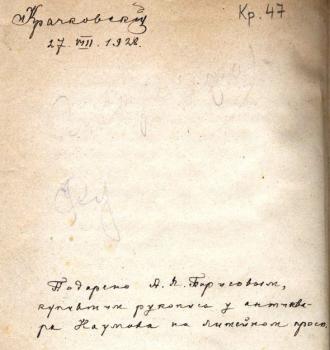 ИКрачковский
Кр. 47
27 VIII. 1928.
Подарено А. Я. Борисовым,
купившим рукопись у антиква-
ра Наумова на Литейном просп.